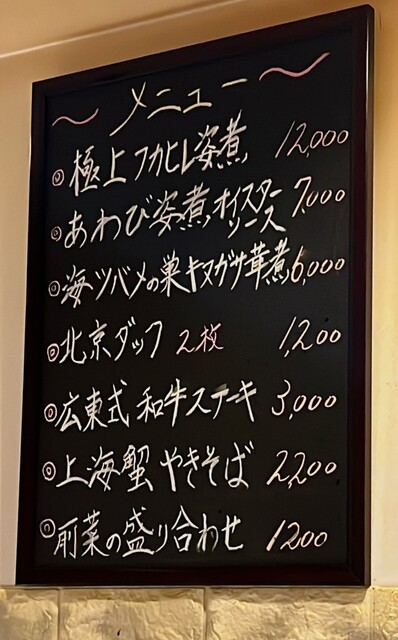 〜メニュー〜
◎極上フカヒレ姿煮 12,000
◎あわび姿煮オイスターソース 7,000
◎海ツバメの巣キヌガサ茸煮 6,000
◎北京ダック 2枚 1,200
◎広東式 和牛ステーキ 3,000
◎上海蟹 やきそば 2,200
◎前菜の盛り合わせ 1200